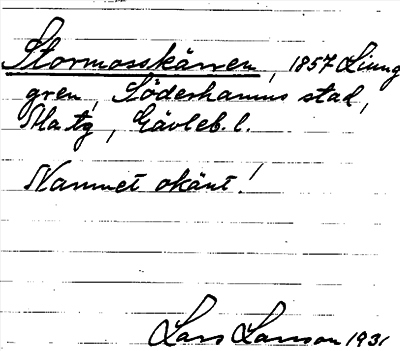 Stormosskärren, 1857 Ljung
gren, Söderhamns stad,
Matg, Gävleb. l.
Namnet okänt!
Lars Larsson 1931